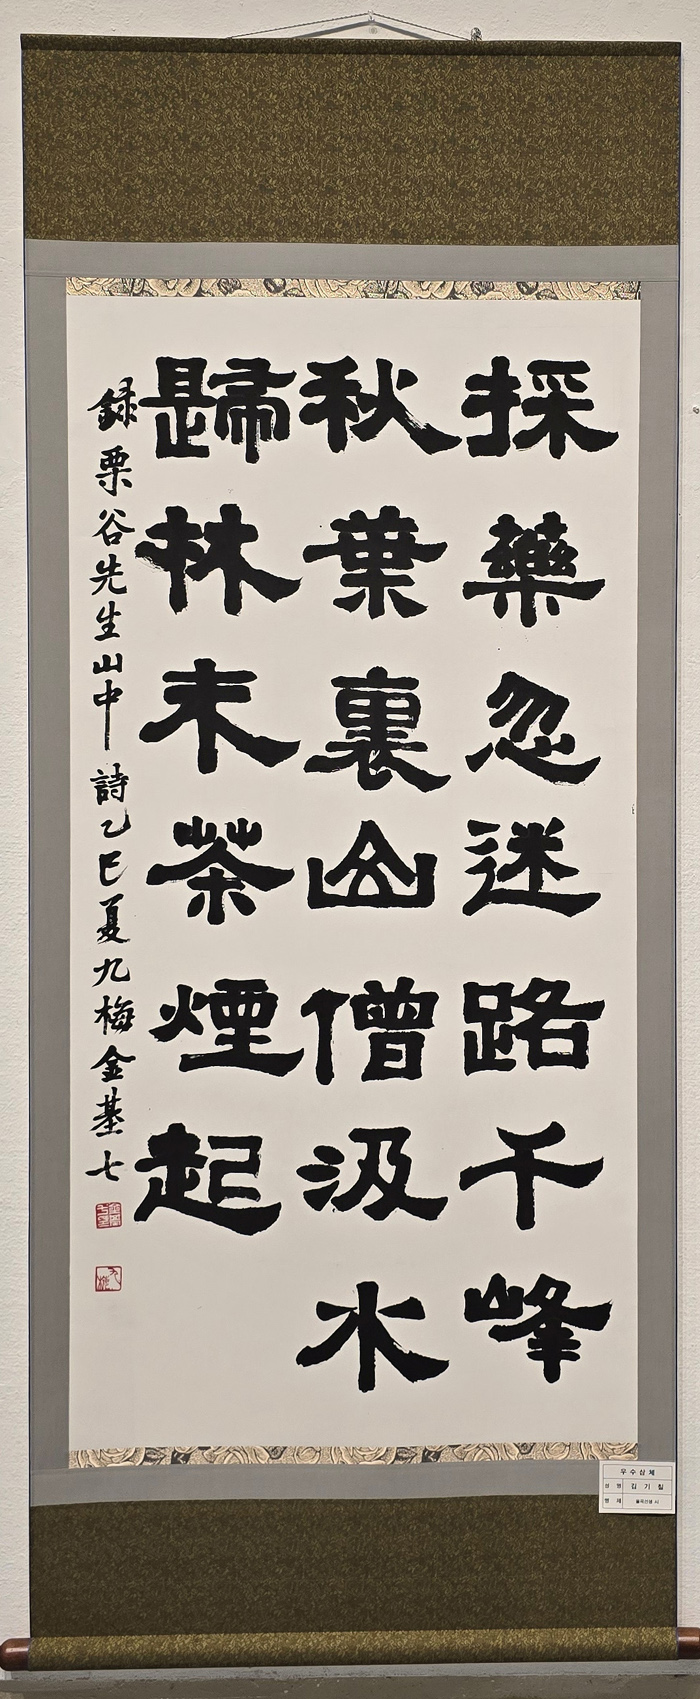 採藥忽迷路千峰
秋葉裏山僧汲水
歸林末茶煙起
録栗谷先生山中詩乙巳夏九梅金基七
우수상체
성 명 김 기 칠
명 제 율곡선생 시